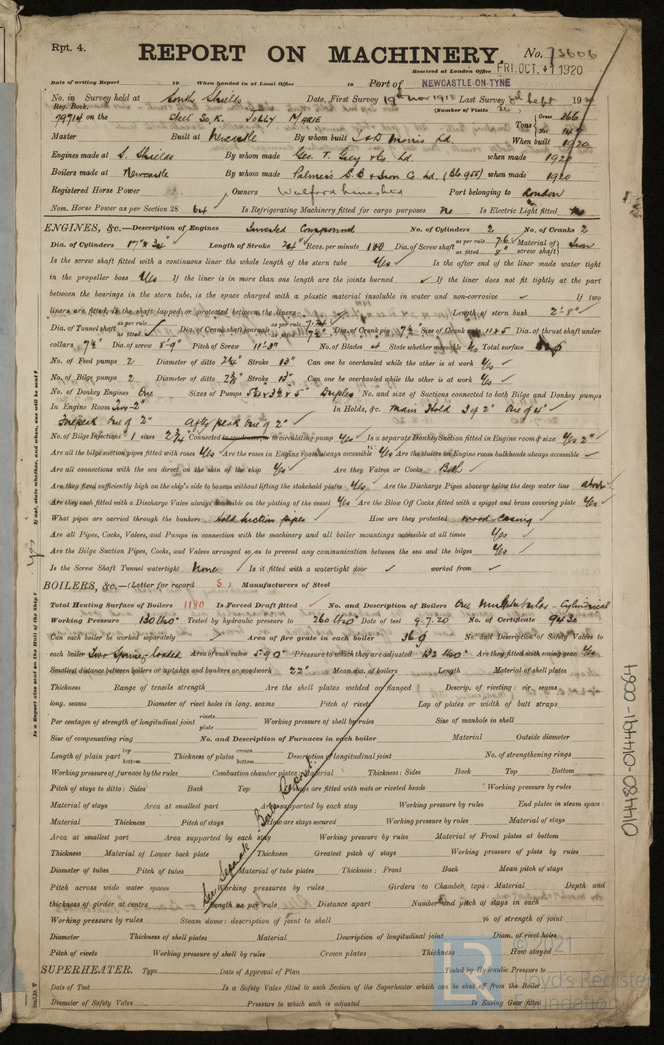 Rpt. 4.
REPORT ON MACHINERY. No. 73606
Received at London Office FRI. OCT. 1 1920
Date of writing Report to When handed in at Local Office to Port of NEWCASTLE-ON-TYNE
No. in Survey held at South Shields Date, First Survey 19th Nov 1918 Last Survey 8th Sept 1920
Reg. Book. (Number of Visits 26)
29714 on the Steel Sc. K. JOLLY MARIE Tons Gross 366 Net 147
Master Built at Newcastle By whom built J & D Morris Ld. When built 1920
Engines made at S. Shields By whom made Geo. T. Grey & Co. Ld. when made 1920
Boilers made at Newcastle By whom made Palmers S.B & Iron Co Ld. when made 1920
Registered Horse Power Owners Walford Lines Ltd Port belonging to London
Nom. Horse Power as per Section 28 64 Is Refrigerating Machinery fitted for cargo purposes No Is Electric Light fitted No
ENGINES, &c.—Description of Engines Inverted Compound No. of Cylinders 2 No. of Cranks 2
Dia. of Cylinders 17" & 34" Length of Stroke 24" Revs. per minute 100 Dia. of Screw shaft as per rule 7.6 as fitted 8" Material of screw shaft Iron
Is the screw shaft fitted with a continuous liner the whole length of the stern tube Yes Is the after end of the liner made water tight
in the propeller boss Yes If the liner is in more than one length are the joints burned If the liner does not fit tightly at the part
between the bearings in the stern tube, is the space charged with a plastic material insoluble in water and non-corrosive If two
liners are fitted, is the shaft lapped or protected between the liners Length of stern bush 2'-8"
Dia. of Tunnel shaft as per rule as fitted Dia. of Crank shaft journals as per rule 7.24 as fitted 7½" Dia. of Crank pin 7½ Size of Crank 11 x 5 Dia. of thrust shaft under
collars 7½ Dia. of screw 8'-9" Pitch of Screw 11'-3" No. of Blades 4 State whether moveable No Total surface
No. of Feed pumps 2 Diameter of ditto 2¼" Stroke 13" Can one be overhauled while the other is at work Yes
No. of Bilge pumps 2 Diameter of ditto Stroke 13" Can one be overhauled while the other is at work Yes
No. of Donkey Engines One Sizes of Pumps 5¼ x 3½ x 5" Duplex No. and size of Suctions connected to both Bilge and Donkey pumps
In Engine Room Two-2" In Holds, &c. Main Hold 3 of 2" One of 4"
Forepeak One of 2" After peak One of 2"
No. of Bilge Injections 1 sizes 2¾ Connected to condenser, or to circulating pump Yes Is a separate Donkey Suction fitted in Engine room & size Yes 2"
Are all the bilge suction pipes fitted with roses Yes Are the roses in Engine room always accessible Yes Are the sluices on Engine room bulkheads always accessible
Are all connections with the sea direct on the skin of the ship Yes Are they Valves or Cocks Both
Are they fixed sufficiently high on the ship's side to be seen without lifting the stokehold plates Yes Are the Discharge Pipes above or below the deep water line above
Are they each fitted with a Discharge Valve always accessible on the plating of the vessel Yes Are the Blow Off Cocks fitted with a spigot and brass covering plate Yes
What pipes are carried through the bunkers Hold Suction pipes How are they protected wood casing
Are all Pipes, Cocks, Valves, and Pumps in connection with the machinery and all boiler mountings accessible at all times Yes
Are the Bilge Suction Pipes, Cocks, and Valves arranged so as to prevent any communication between the sea and the bilges Yes
Is the Screw Shaft Tunnel watertight None Is it fitted with a watertight door worked from
BOILERS, &c.—(Letter for record S) Manufacturers of Steel
Total Heating Surface of Boilers 1180 Is Forced Draft fitted No. and Description of Boilers One Multitubular - Cylindrical
Working Pressure 130 lbs Tested by hydraulic pressure to 260 lbs Date of test 9-7-20 No. of Certificate 9430
Can each boiler be worked separately Area of fire grate in each boiler 36 No. and Description of Safety Valves to
each boiler Two Spring-loaded Area of each valve 5.90" Pressure to which they are adjusted 133 lbs Are they fitted with easing gear Yes
Smallest distance between boilers or uptakes and bunkers or woodwork 23" Mean dia. of boilers Length Material of shell plates
Thickness Range of tensile strength Are the shell plates welded or flanged Descrip. of riveting: cir. seams
long. seams Diameter of rivet holes in long. seams Pitch of rivets Lap of plates or width of butt straps
Per centages of strength of longitudinal joint rivets plate Working pressure of shell by rules Size of manhole in shell
Size of compensating ring No. and Description of Furnaces in each boiler Material Outside diameter
Length of plain part top bottom Thickness of plates crown bottom Description of longitudinal joint No. of strengthening rings
Working pressure of furnace by the rules Combustion chamber plates: Material Thickness: Sides Back Top Bottom
Pitch of stays to ditto: Sides Back Top If stays are fitted with nuts or riveted heads Working pressure by rules
Material of stays Area at smallest part Area supported by each stay Working pressure by rules End plates in steam space:
Material Thickness Pitch of stays How are stays secured Working pressure by rules Material of stays
Area at smallest part Area supported by each stay Working pressure by rules Material of Front plates at bottom
Thickness Material of Lower back plate Thickness Greatest pitch of stays Working pressure of plate by rules
Diameter of tubes Pitch of tubes Material of tube plates Thickness: Front Back Mean pitch of stays
Pitch across wide water spaces Working pressures by rules Girders to Chamber tops: Material Depth and
thickness of girder at centre Length as per rule Distance apart Number and pitch of stays in each
Working pressure by rules Steam dome: description of joint to shell % of strength of joint
Diameter Thickness of shell plates Material Description of longitudinal joint Diam. of rivet holes
Pitch of rivets Working pressure of shell by rules Crown plates Thickness How stayed
See Separate Boiler Report.
SUPERHEATER. Type Date of Approval of Plan Tested by Hydraulic Pressure to
Date of Test Is a Safety Valve fitted to each Section of the Superheater which can be shut off from the Boiler
Diameter of Safety Valve Pressure to which each is adjusted Is Easing Gear fitted
Is a Report also sent on the Hull of the Ship?
Yes
If not, state whether, and when, one will be sent?
044480-044491-0084
© 2021
LR
Lloyd's Register
Foundation